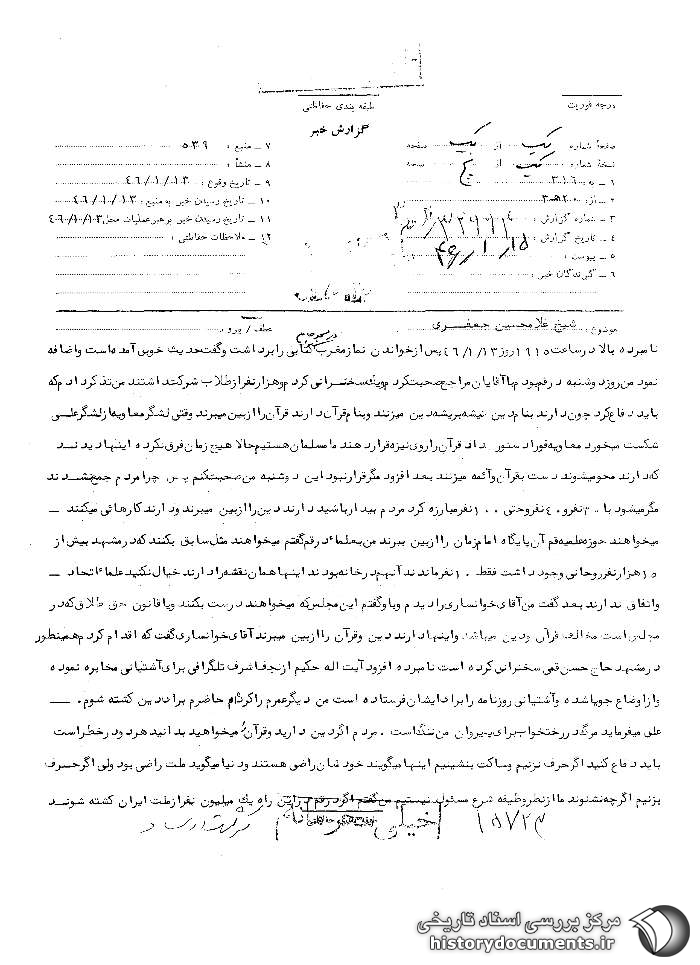 درجه فوریت
طبقه بندی حفاظتی
گزارش خبر
صفحهٔ شماره یک از یک صفحه
نسخهٔ شماره یک از پنج نسخه
۱ - به ۳۱۶
۲ - از ۲۰ ه ۳
۳ - شماره گزارش :
۴ - تاریخ گزارش : ۴۶/۱/۱۵
۵ - پیوست :
۶ - گیرندگان خبر :
۷ - منبع : ۵۳۹
۸ - منشأ :
۹ - تاریخ وقوع : ۴۶/۱/۱۳
۱۰ - تاریخ رسیدن خبر به منبع : ۴۶/۱/۱۳
۱۱ - تاریخ رسیدن خبر برهبر عملیات محل ۴۶/۱/۱۳
۱۲ - ملاحظات حفاظتی :
موضوع : شیخ غلامحسین جعفری
عطف / پیرو :
نامبرده بالا درساعت ۱۹۱۵ روز ۴۶/۱/۱۳ پس ازخواندن نمازمغرب کتابی رابرداشت وگفت حدیث خوبی آمده است واضافه
نمود من روز دوشنبه درقم بودم باآقایان مراجع صحبت کردم و سخنرانی کردم وهزارنفرازطلاب شرکت داشتند من تذکردادم که
باید دفاع کرد چون دارند بنام دین تیشه بریشه دین میزنند وبنام قرآن دارند قرآن راازبین میبرند وقتی لشگرمعاویه ازلشگرعلی
شکست میخورد معاویه فورا دستور داد قرآن راروی نیزه قراردهند ما مسلمان هستیم حالا هیچ زمان فرق نکرده اینها دیدند
که دارند محومیشوند دست بقرآن وآئمه میزنند بعد افزود مگرقرارنبود این دوشنبه من صحبت کنم پس چرا مردم جمع نشدند
مگرمیشود با ۳۰ نفرو ۴۰ نفروحتی ۱۰۰ نفرمبارزه کرد مردم بیدارباشید دارند دین راازبین میبرند ودارند کارهائی میکنند -
میخواهند حوزه علمیه قم آن پایگاه امام زمان را ازبین ببرند من بعلماء درقم گفتم میخواهند مثل سابق بکنند که درمشهد بیش از
۱۵ هزارنفرروحانی وجود داشت فقط ۱۰ نفرماندند آنهم درخانه بودند اینها همان نقشه رادارند خیال نکنید علماء اتحاد -
واتفاق ندارند بعد گفت من آقای خوانساری رادیدم وباوگفتم این مجلس که میخواهند درست بکنند ویا قانون حق طلاق که در
مجلس است مخالف قرآن ودین میباشد واینها دارند دین وقرآن راازبین میبرند آقای خوانساری گفت که اقدام کردم همینطور
درمشهد حاج حسن قمی سخنرانی کرده است نامبرده افزود آیت اله حکیم ازنجف اشرف تلگرافی برای آشتیانی مخابره نموده
وازاوضاع جویا شده وآشتیانی روزنامه رابرای ایشان فرستاده است من دیگرعمرم راکرده‌ام حاضرم برای دین کشته شوم . -
علی میفرماید مرگ در رختخواب برای پیروان من ننگ است . مردم اگردین دارید وقرآن میخواهید بدانید هردو درخطراست
باید دفاع کنید اگرحرف نزنیم وساکت بنشینیم اینها میگویند خودشان راضی هستند ودنیا میگوید ملت راضی بود ولی اگرحرف
بزنیم اگرچه نشنوند ماازنظروظیفه شرع مسئول نیستیم من گفتم اگردرقم دراین راه یک میلیون نفرازملت ایران کشته شوند
۱۵۷۲۳
مرکز بررسی اسناد تاریخی
historydocuments.ir